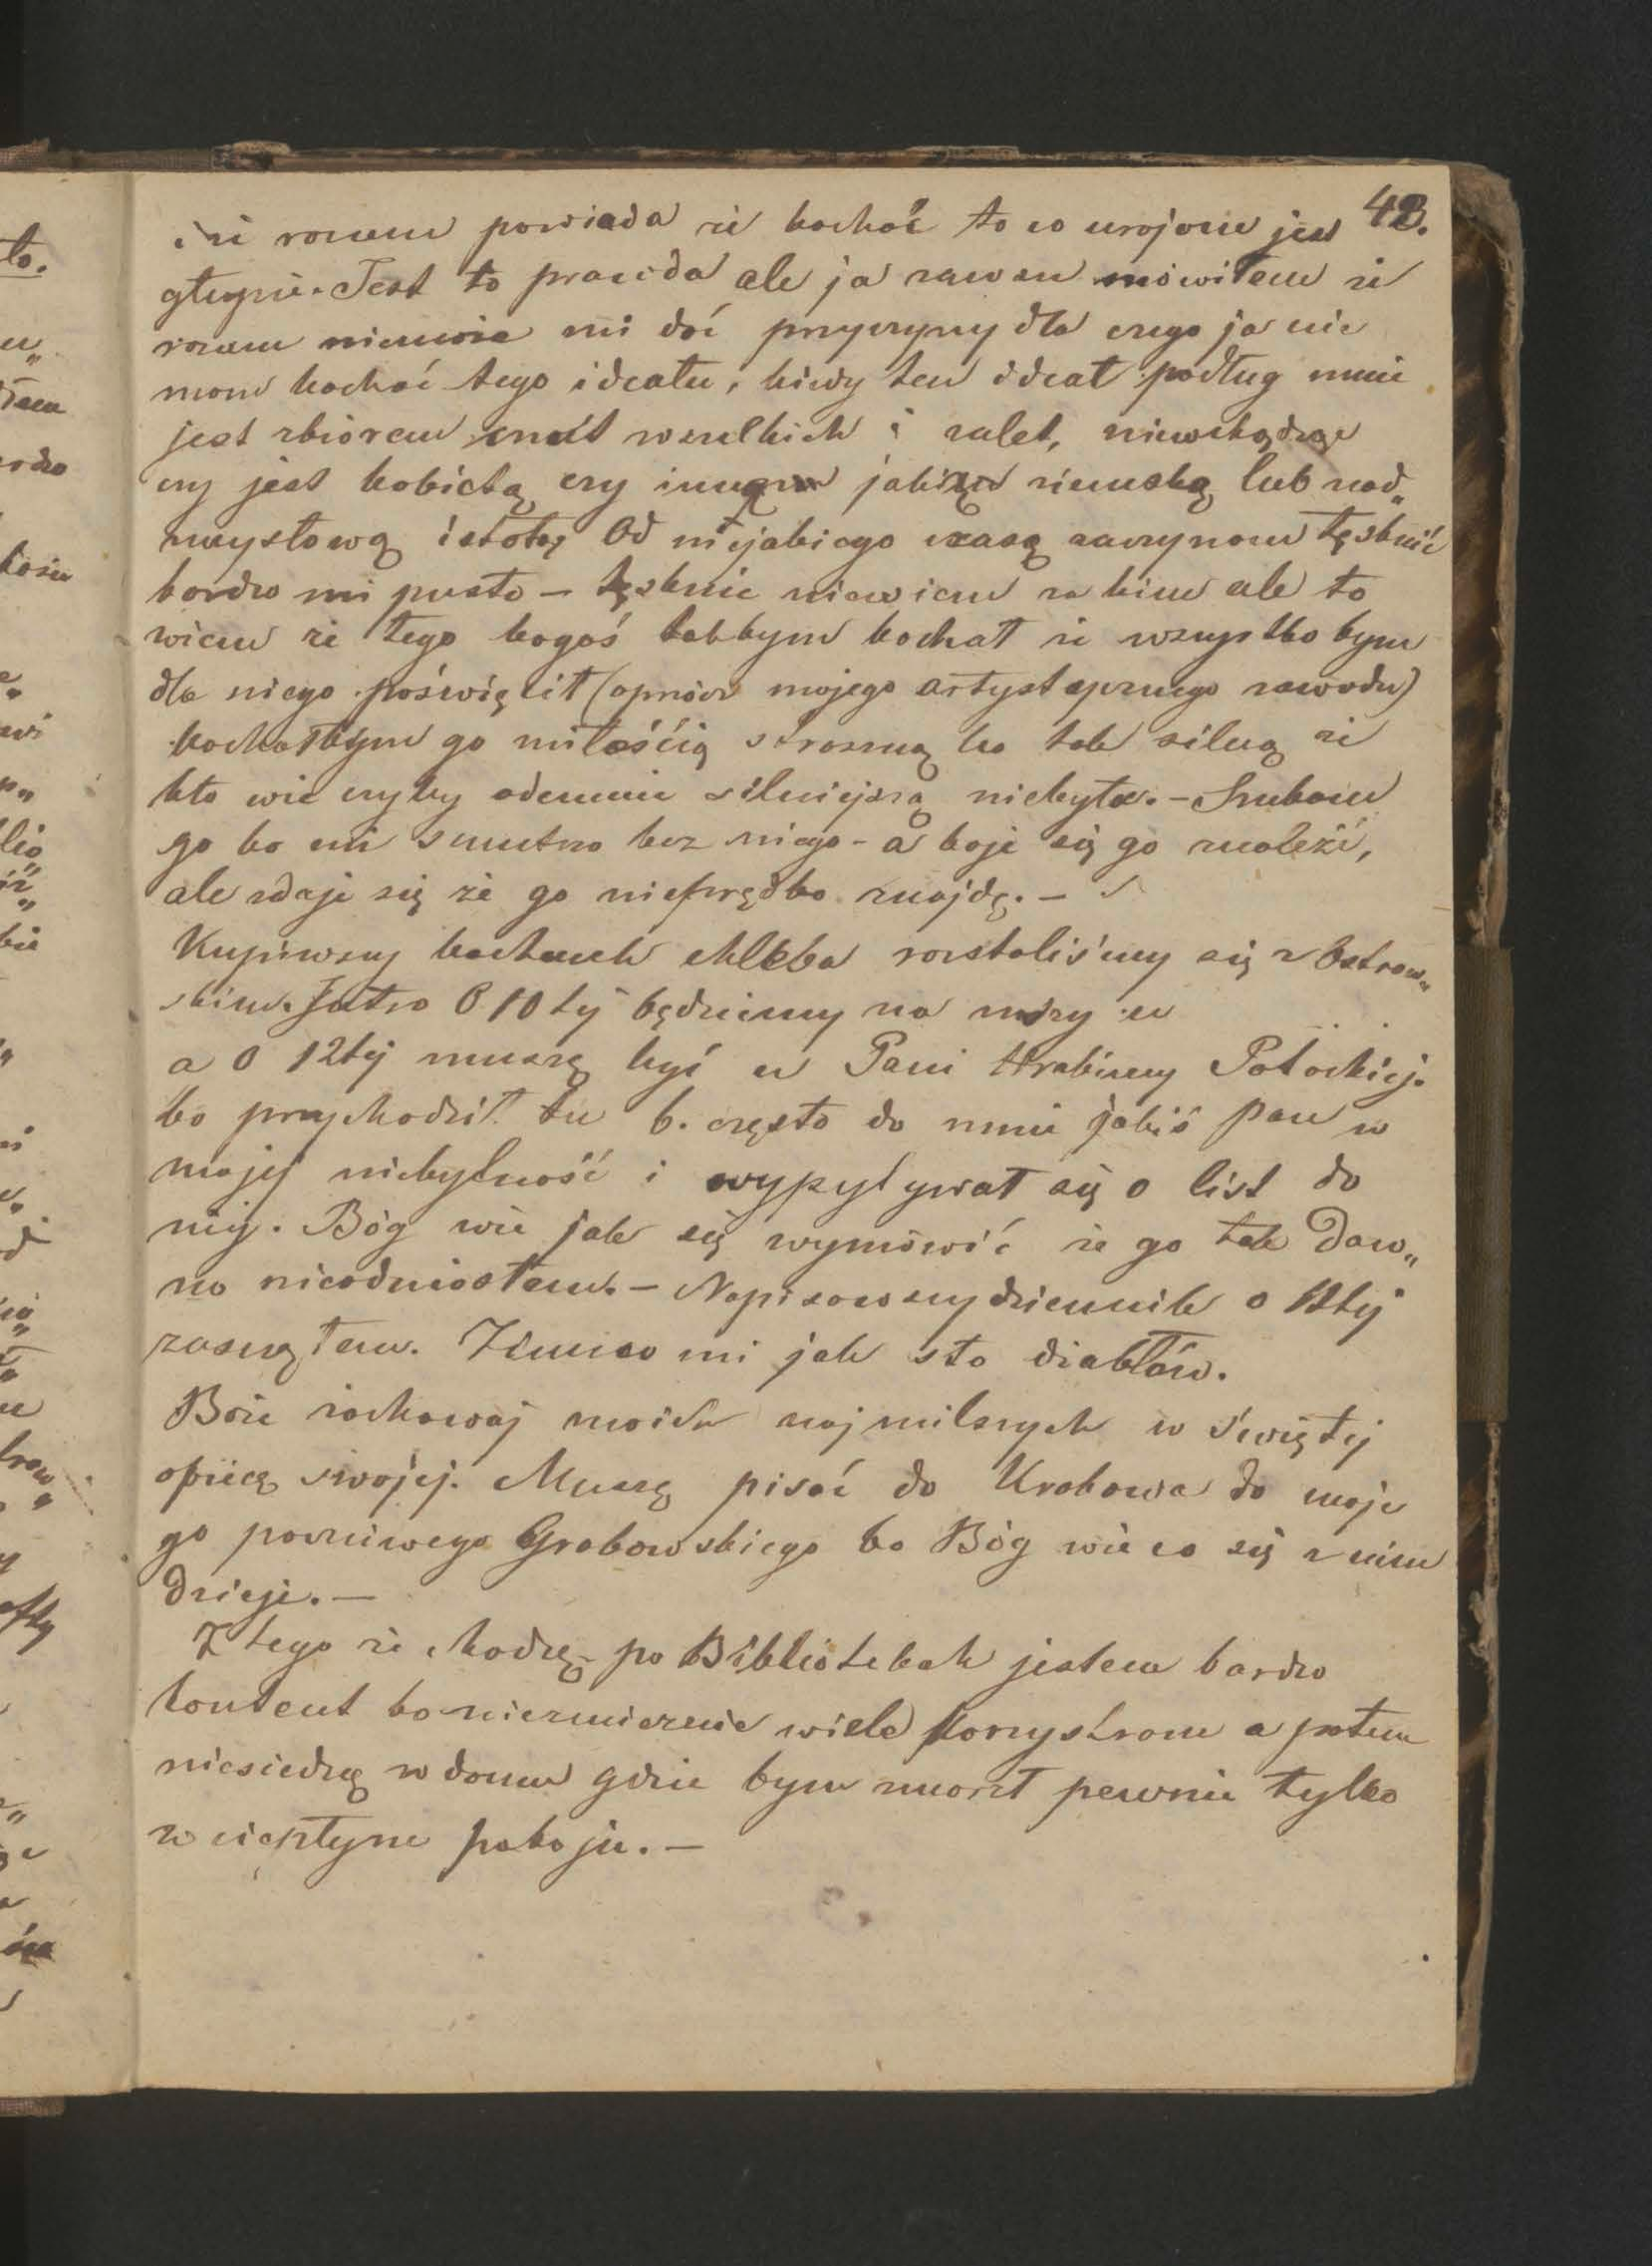 43.
i że rozum powiada że kochać to co urojone jest
głupie. Jest to prawda ale ja zawsze mówiłem że
rozum niemoże mi dać przyczyny dla czego ja nie
mam kochać tego ideału, kiedy ten ideał podług mnie
jest zbiorem cnót wszelkich i zalet, niewchodzę
czy jest kobietą czy inną jakiąś ziemską lub nad„
zmysłową istotą Od niejakiego czasu zaczynam tęsknić
bardzo mi pusto – tęsknię niewiem za kim ale to
wiem że tego kogoś takbym kochał że wszystko bym
dla niego poświęcił (oprócz mojego artystycznego zawodu)
kochałbym go miłością straszną bo tak silną że
kto wie czyby odemnie silniejszą niebyła. – Szukam
go bo mi smutno bez niego – a boję się go znaleźć,
ale zdaje się że go nieprędko znajdę. –
Kupiwszy bochenek chleba rozstaliśmy się z Ostrow„
skim. Jutro o 10tej będziemy na mszy w
a o 12tej muszę być u Pani Hrabiny Potockiej.
bo przychodził tu b. często do mnie jakiś pan w
mojej niebytność i wypytywał się o list do
niej. Bóg wie jak się wymówić że go tak daw„
no nieodniosłem. – Napisawszy dziennik o 12tej
zasnąłem. Zimno mi jak sto diabłów.
Boże zachowaj moich najmilszych w świętej
opiece swojej. Muszę pisać do Krakowa do moje
go poczciwego Grabowskiego bo Bóg wie co się z nim
dzieje. –
Z tego że chodzę po Bibliotekach jestem bardzo
kontent bo niezmiernie wiele korzystam a potem
niesiedzę w domu gdzie bym marzł pewnie tylko
w ciepłym pokoju. –